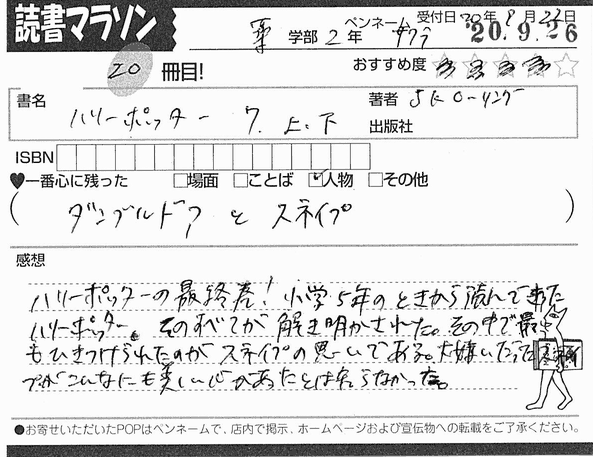 読書マラソン
薬 学部 2 年 ペンネーム サクラ 受付日 20年 9月 23日
20.9.26
20 冊目! おすすめ度 ★★★★☆
書名 ハリーポッター 7. 上.下
著者 J K ローリング
出版社
ISBN
♥一番心に残った □場面 □ことば ☑人物 □その他
( ダンブルドア と スネイプ )
感想
ハリーポッターの最終巻!小学5年のときから読んで来た
ハリーポッター。そのすべてが解き明かされた。その中で最
もひきつけられたのがスネイプの思いである。大嫌いだったスネイ
プがこんなにも美しい心があったとは知らなかった。
●お寄せいただいたPOPはペンネームで、店内で掲示、ホームページおよび宣伝物への転載をご了承ください。